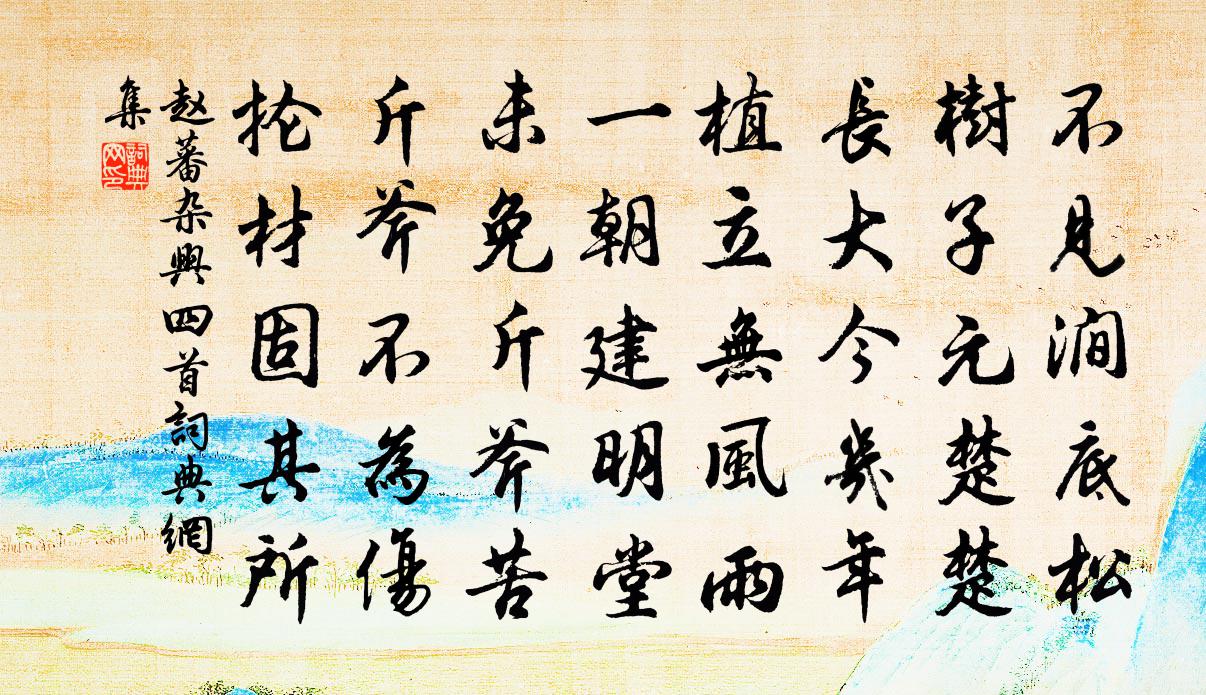 不見澗底松
樹子元楚楚
長大今幾年
植立無風雨
一朝建明堂
未免斤斧苦
斤斧不為傷
抡材固其所
赵蕃杂興四首詞典網
集
詞典
网印